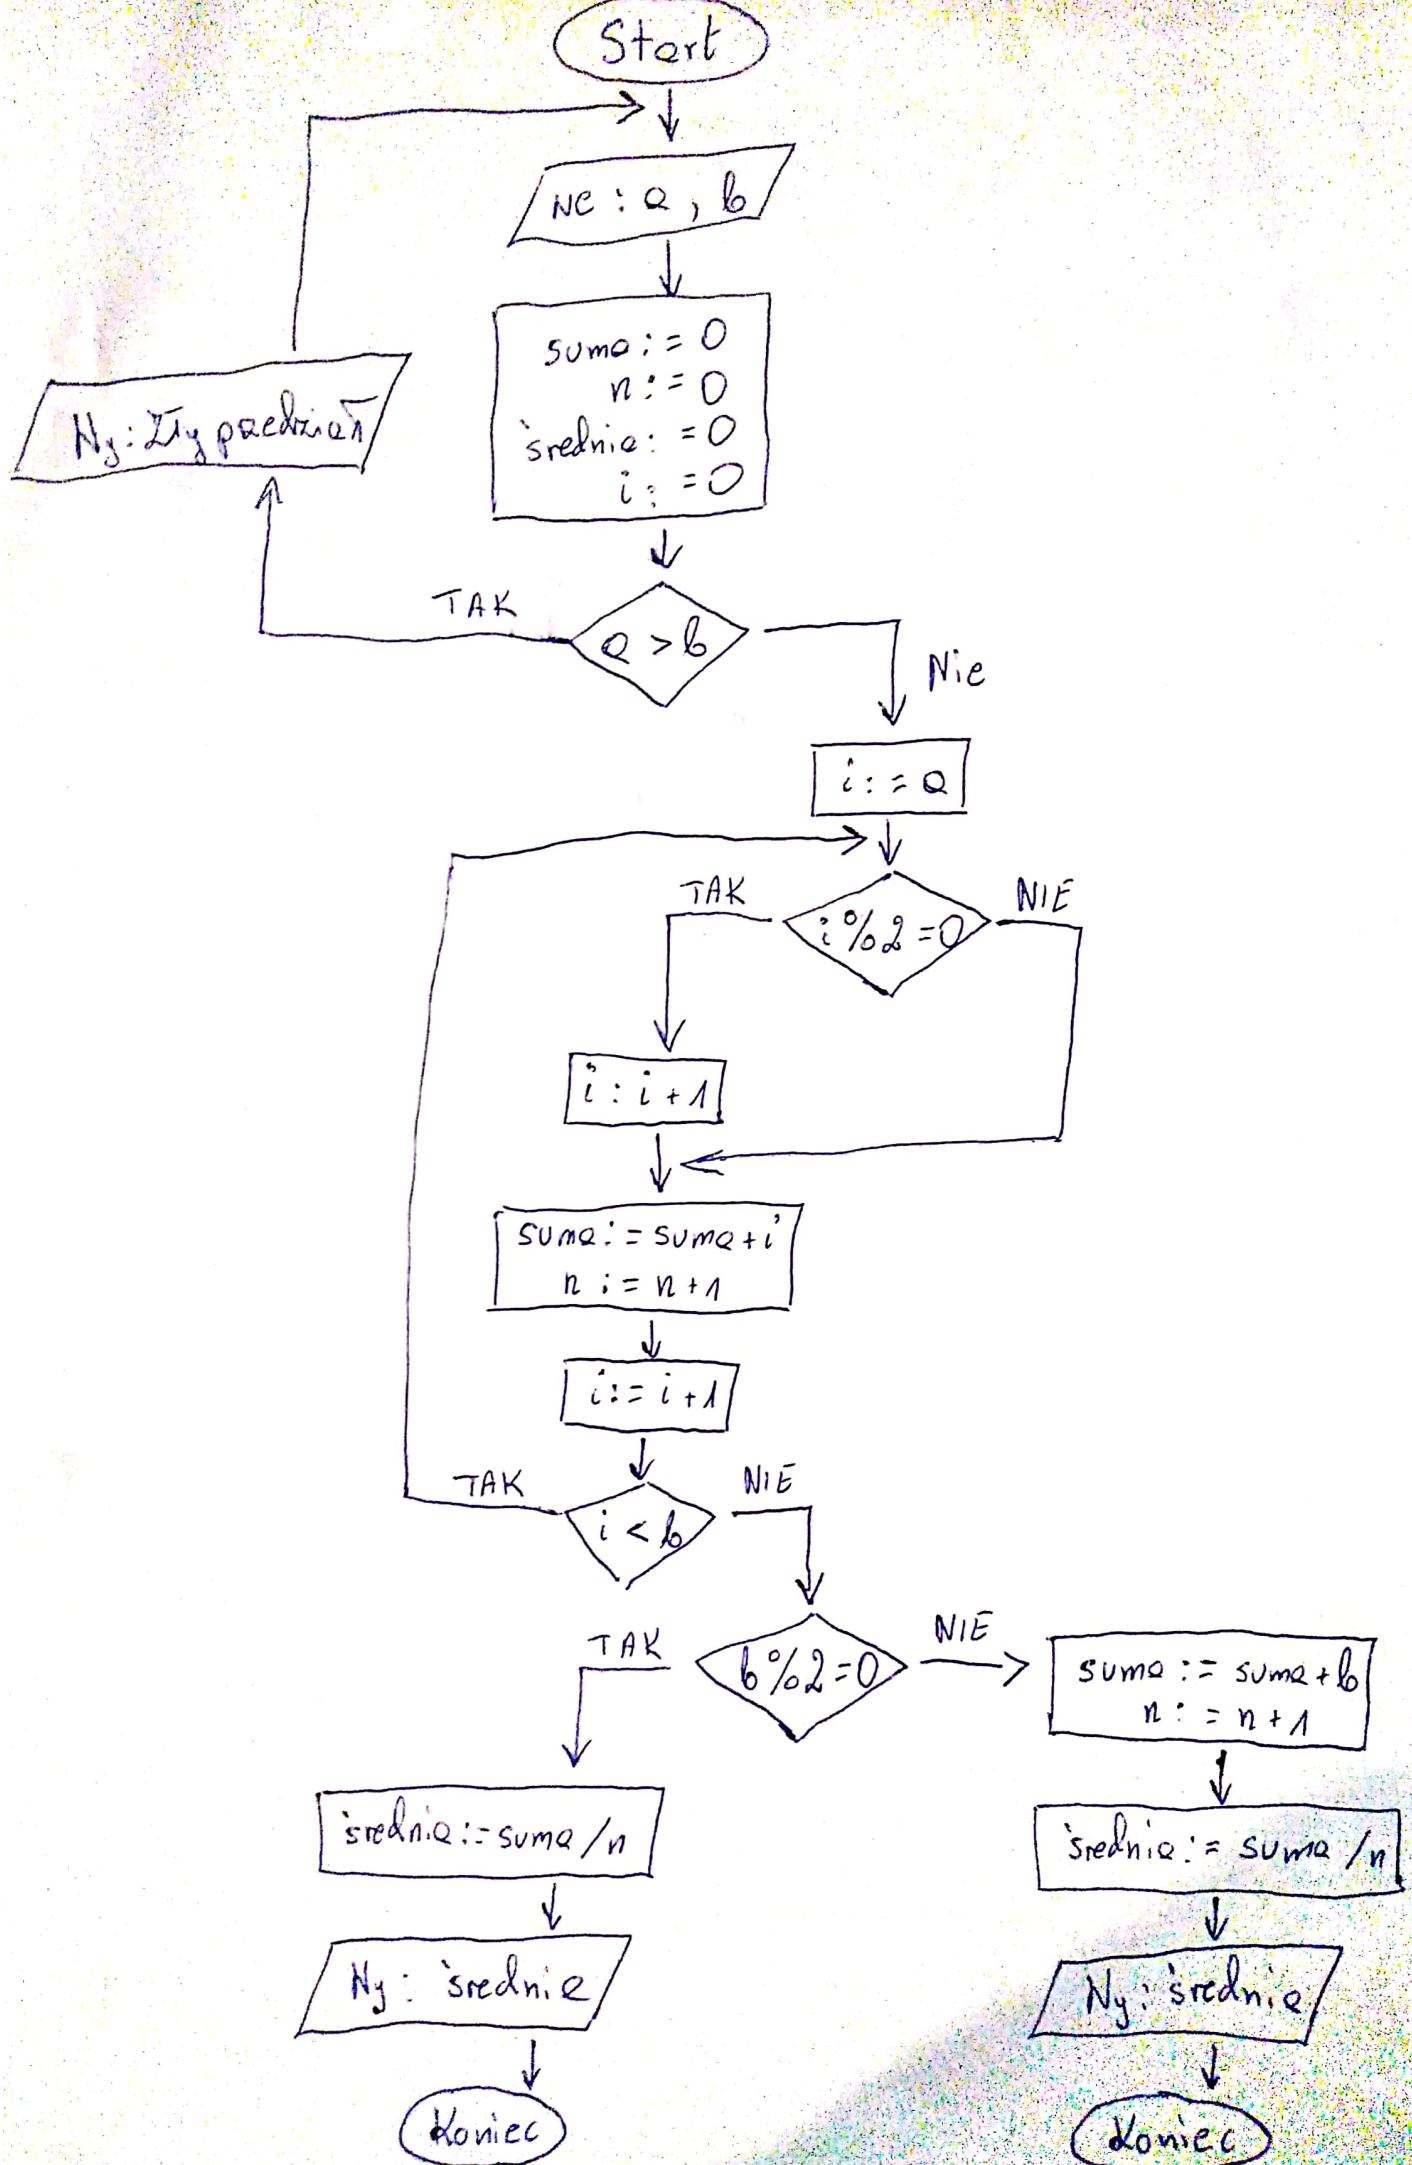 Start
We : a, b
suma := 0
n := 0
średnia := 0
i := 0
Wy: Zły przedział
TAK
a > b
Nie
i := a
TAK
i%2=0
NIE
i : i + 1
suma := suma + i
n := n + 1
i := i + 1
TAK
i < b
NIE
TAK
b%2=0
NIE
suma := suma + b
n := n + 1
średnia := suma / n
średnia := suma / n
Wy: średnia
Wy: średnia
Koniec
Koniec